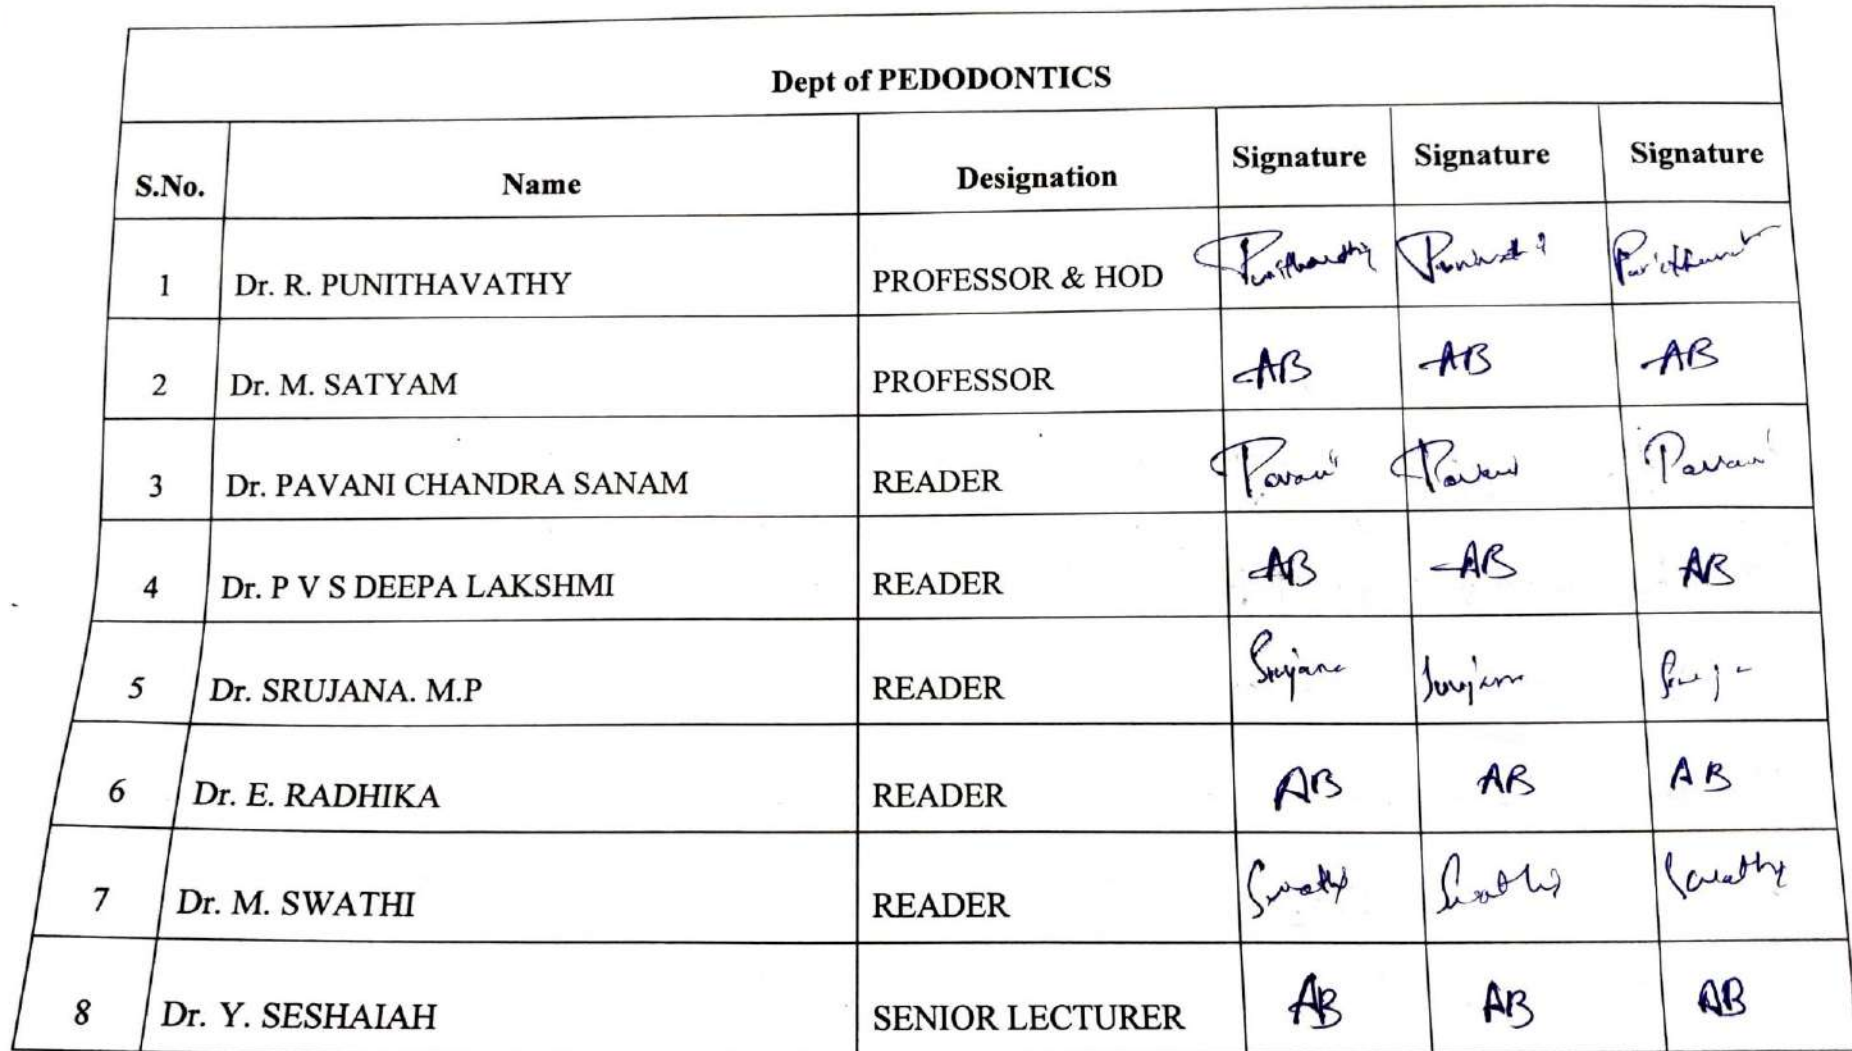 Dept of PEDODONTICS
S.No. Name Designation Signature Signature Signature
1 Dr. R. PUNITHAVATHY PROFESSOR & HOD Punithavathy
2 Dr. M. SATYAM PROFESSOR AB AB AB
3 Dr. PAVANI CHANDRA SANAM READER Pavani Pavani Pavani
4 Dr. P V S DEEPA LAKSHMI READER AB AB AB
5 Dr. SRUJANA. M.P READER Srujana
6 Dr. E. RADHIKA READER AB AB AB
7 Dr. M. SWATHI READER Swathi Swathi Swathi
8 Dr. Y. SESHAIAH SENIOR LECTURER AB AB AB